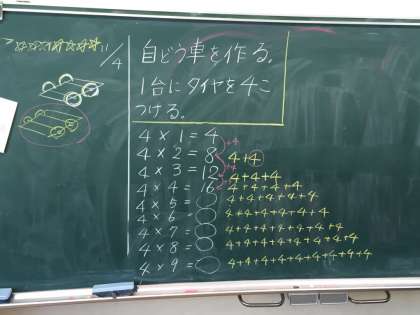 11/4
自どう車を作る。
1台にタイヤを4こ
つける。
4×1=4
+4
4×2=8 4+4
4×3=12 4+4+4
4×4=16 4+4+4+4
4×5=○ 4+4+4+4+4
4×6=○ 4+4+4+4+4+4
4×7=○ 4+4+4+4+4+4+4
4×8=○ 4+4+4+4+4+4+4+4
4×9=○ 4+4+4+4+4+4+4+4+4